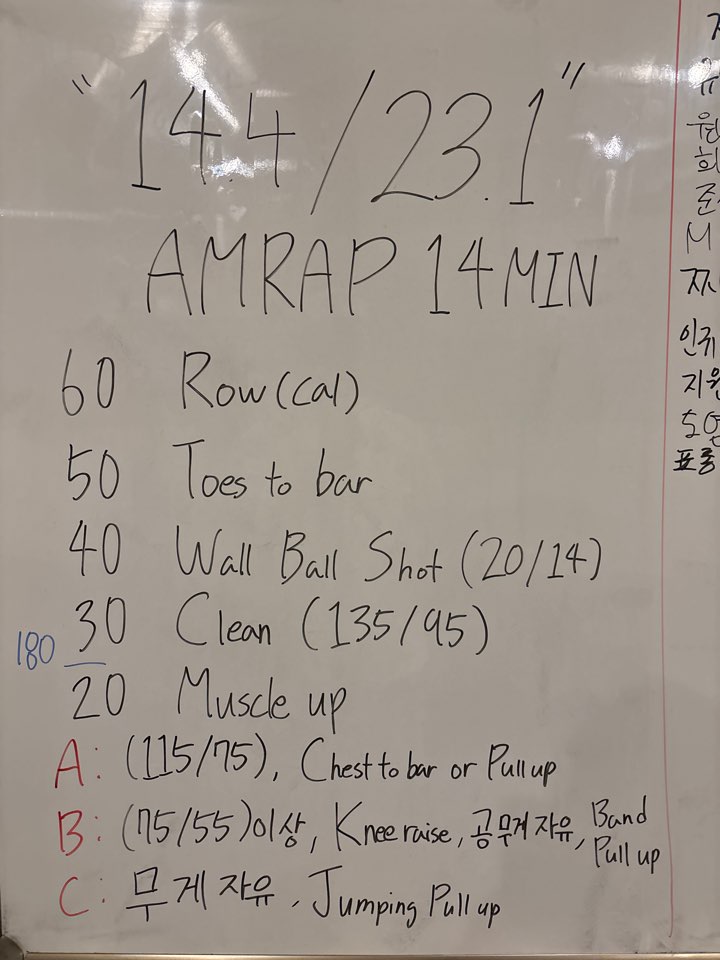 "14.4/23.1"
AMRAP 14MIN
60 Row(cal)
50 Toes to bar
40 Wall Ball Shot (20/14)
30 Clean (135/95)
180
20 Muscle up
A: (115/75), Chest to bar or Pull up
B: (75/55)이상, Knee raise, 공무게 자유, Band Pull up
C: 무게 자유, Jumping Pull up
원
희
준
M
인쥐
지원
표종